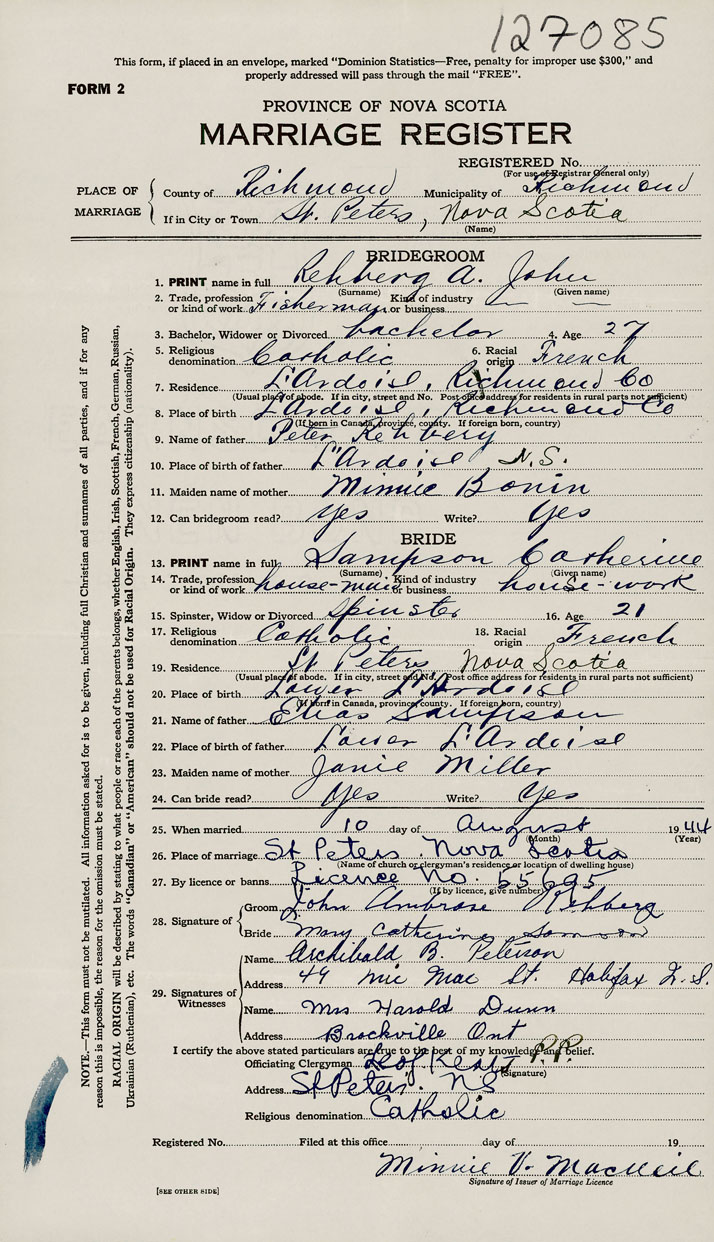 127085
This form, if placed in an envelope, marked "Dominion Statistics—Free, penalty for improper use $300," and
properly addressed will pass through the mail "FREE".
FORM 2
PROVINCE OF NOVA SCOTIA
MARRIAGE REGISTER
REGISTERED No.
(For use of Registrar General only)
PLACE OF MARRIAGE
County of Richmond Municipality of Richmond
If in City or Town St. Peters, Nova Scotia
(Name)
BRIDEGROOM
1. PRINT name in full Rehberg A. John
(Surname) (Given name)
2. Trade, profession or kind of work Fisherman Kind of industry or business — —
3. Bachelor, Widower or Divorced bachelor 4. Age 27
5. Religious denomination Catholic 6. Racial origin French
7. Residence L'Ardoise, Richmond Co
(Usual place of abode. If in city, street and No. Post office address for residents in rural parts not sufficient)
8. Place of birth L'Ardoise, Richmond Co
(If born in Canada, province, county. If foreign born, country)
9. Name of father Peter Rehberg
10. Place of birth of father L'Ardoise N.S.
11. Maiden name of mother Minnie Bonin
12. Can bridegroom read? yes Write? Yes
BRIDE
13. PRINT name in full Sampson Catherine
(Surname) (Given name)
14. Trade, profession or kind of work house-maid Kind of industry or business house-work
15. Spinster, Widow or Divorced Spinster 16. Age 21
17. Religious denomination Catholic 18. Racial origin French
19. Residence St Peters Nova Scotia
(Usual place of abode. If in city, street and No. Post office address for residents in rural parts not sufficient)
20. Place of birth Lower L'Ardoise
(If born in Canada, province, county. If foreign born, country)
21. Name of father Elias Sampson
22. Place of birth of father Lower L'Ardoise
23. Maiden name of mother Janie Miller
24. Can bride read? Yes Write? Yes
25. When married 10 day of August 1944
(Month) (Year)
26. Place of marriage St Peters Nova Scotia
(Name of church or clergyman's residence or location of dwelling house)
27. By licence or banns Licence No. 55695
(If by licence, give number)
28. Signature of
Groom John Ambrose Rehberg
Bride Mary Catherine Samson
29. Signatures of Witnesses
Name Archibald B. Peterson
Address 49 Mic Mac St. Halifax N.S.
Name Mrs Harold Dunn
Address Brockville Ont
I certify the above stated particulars are true to the best of my knowledge and belief.
Officiating Clergyman P.P.
(Signature)
Address St Peters. NS
Religious denomination Catholic
Registered No. Filed at this office day of 19
Minnie V. MacNeil
Signature of Issuer of Marriage Licence
[SEE OTHER SIDE]
NOTE.—This form must not be mutilated. All information asked for is to be given, including full Christian and surnames of all parties, and if for any
reason this is impossible, the reason for the omission must be stated.
RACIAL ORIGIN will be described by stating to what people or race each of the parents belongs, whether English, Irish, Scottish, French, German, Russian,
Ukrainian (Ruthenian), etc. The words "Canadian" or "American" should not be used for Racial Origin. They express citizenship (nationality).